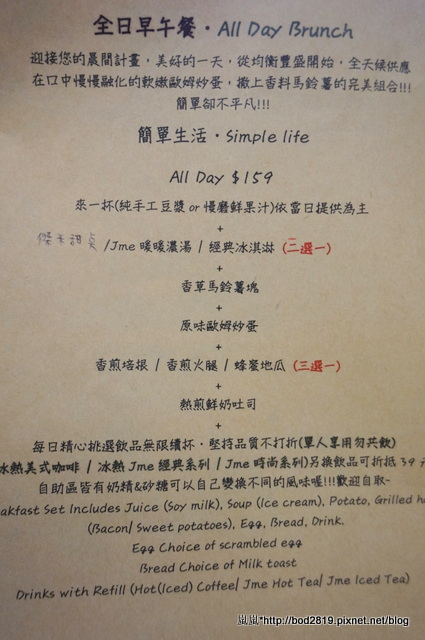 全日早午餐・All Day Brunch
迎接您的晨間計畫，美好的一天，從均衡豐盛開始，全天候供應
在口中慢慢融化的軟嫩歐姆炒蛋，撒上香料馬鈴薯的完美組合!!!
簡單卻不平凡!!!
簡單生活・Simple life
All Day $159
來一杯(純手工豆漿 or 慢磨鮮果汁)依當日提供為主
+
甜點 /Jme 暖暖濃湯 / 經典冰淇淋 (二選一)
+
香草馬鈴薯塊
+
原味歐姆炒蛋
+
香煎培根 / 香煎火腿 / 蜂蜜地瓜 (三選一)
+
熱煎鮮奶吐司
+
每日精心挑選飲品無限續杯・堅持品質不打折(單人享用勿共飲)
冰熱美式咖啡 / 冰熱 Jme 經典系列 / Jme 時尚系列)另換飲品可折抵 39 元
自助區皆有奶精&砂糖可以自己變換不同的風味喔!!!歡迎自取~
akfast Set Includes Juice (Soy milk), Soup (Ice cream), Potato, Grilled h
(Bacon/ Sweet potatoes), Egg, Bread, Drink.
Egg Choice of scrambled egg
Bread Choice of Milk toast
Drinks with Refill (Hot(Iced) Coffee/ Jme Hot Tea/ Jme Iced Tea)
嵐嵐*http://bod2819.pixnet.net/blog